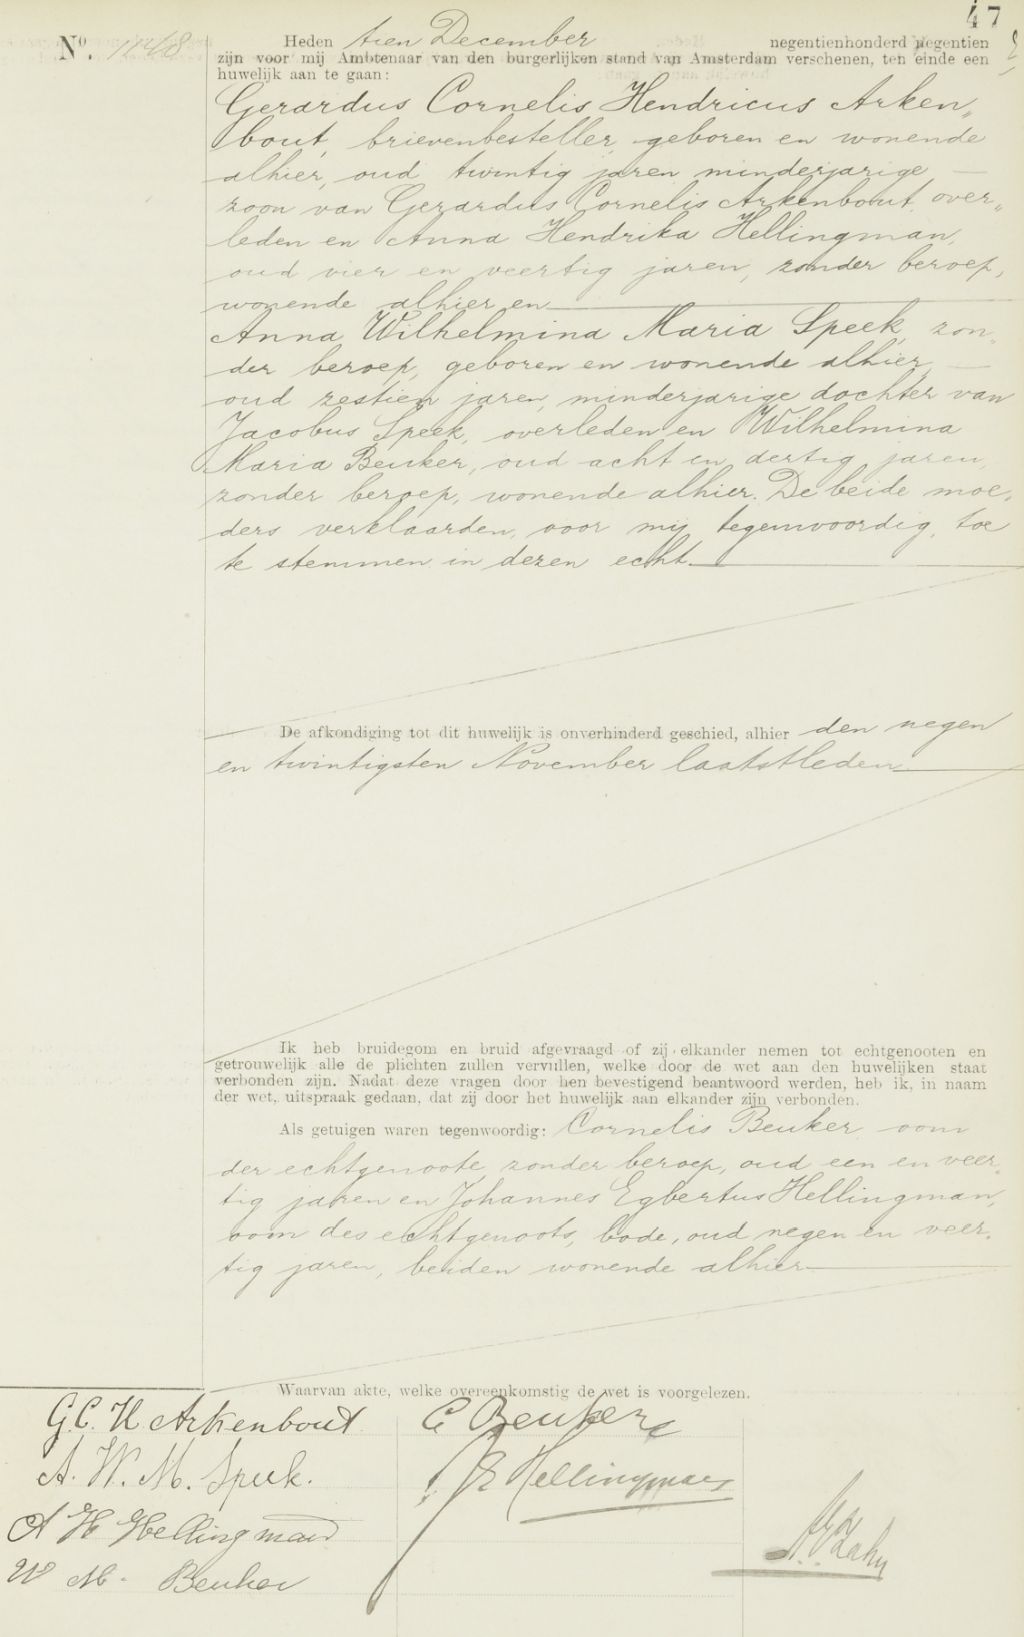 47
Nº.
Heden tien December negentienhonderd negentien
zijn voor mij Ambtenaar van den burgerlijken stand van Amsterdam verschenen, ten einde een
huwelijk aan te gaan:
Gerardus Cornelis Hendricus Arken„
bout, brievenbesteller, geboren en wonende
alhier, oud twintig jaren minderjarige —
zoon van Gerardus Cornelis Arkenbout, over„
leden en Anna Hendrika Hellingman,
oud vier en veertig jaren, zonder beroep,
wonende alhier en —
Anna Wilhelmina Maria Speek, zon„
der beroep, geboren en wonende alhier, —
oud zestien jaren, minderjarige dochter van
Jacobus Speek, overleden en Wilhelmina
Maria Beuker, oud acht en dertig jaren,
zonder beroep, wonende alhier. De beide moe„
ders verklaarden, voor mij tegenwoordig, toe
te stemmen in dezen echt. —
De afkondiging tot dit huwelijk is onverhinderd geschied, alhier den negen
en twintigsten November laatstleden. —
Ik heb bruidegom en bruid afgevraagd of zij elkander nemen tot echtgenooten en
getrouwelijk alle de plichten zullen vervullen, welke door de wet aan den huwelijken staat
verbonden zijn. Nadat deze vragen door hen bevestigend beantwoord werden, heb ik, in naam
der wet, uitspraak gedaan, dat zij door het huwelijk aan elkander zijn verbonden.
Als getuigen waren tegenwoordig: Cornelis Beuker, oom
der echtgenoote zonder beroep, oud een en veer„
tig jaren en Johannes Egbertus Hellingman,
oom des echtgenoots, bode, oud negen en veer„
tig jaren, beiden wonende alhier —
Waarvan akte, welke overeenkomstig de wet is voorgelezen.
G. C. H Arkenbout
C Beuker
A. W. M. Speek.
J E Hellingman
A H Hellingman
W M. Beuker